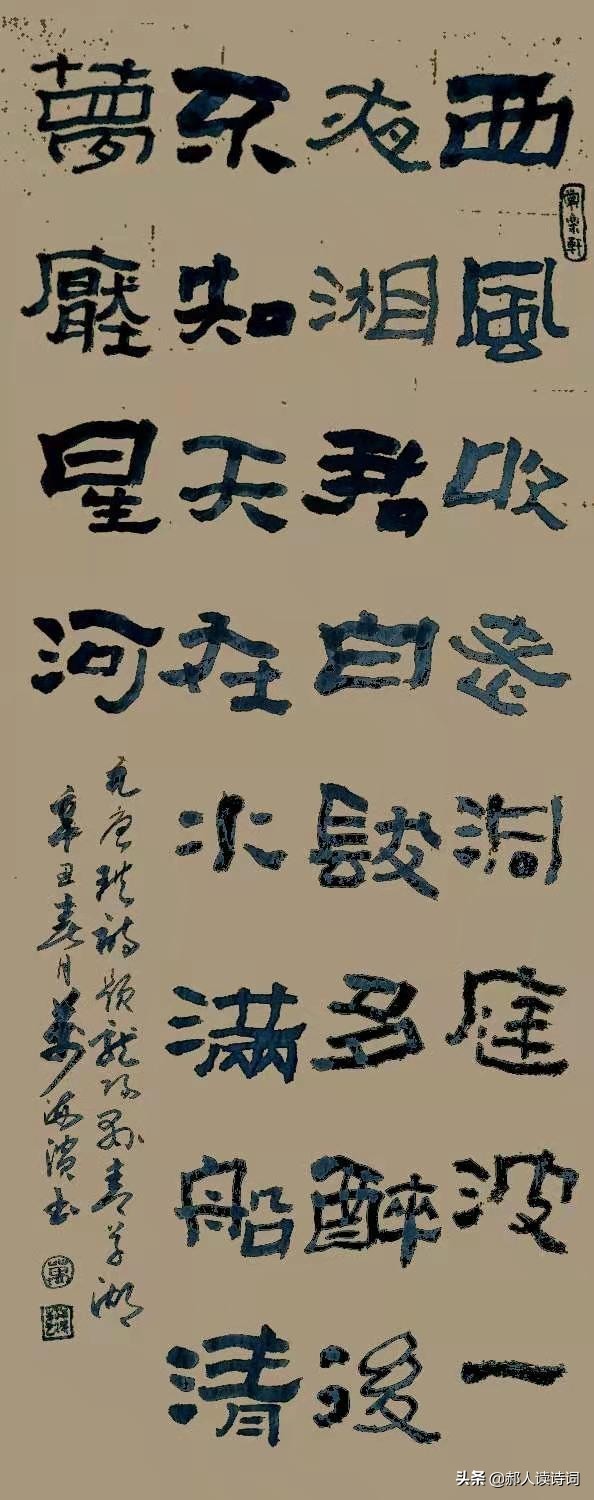 西風吹老洞庭波一
夜湘君白髮多醉後
不知天在水滿船清
夢壓星河
元唐珙詩題龍陽縣青草湖
辛丑春月萬海濱書
头条 @郝人读诗词